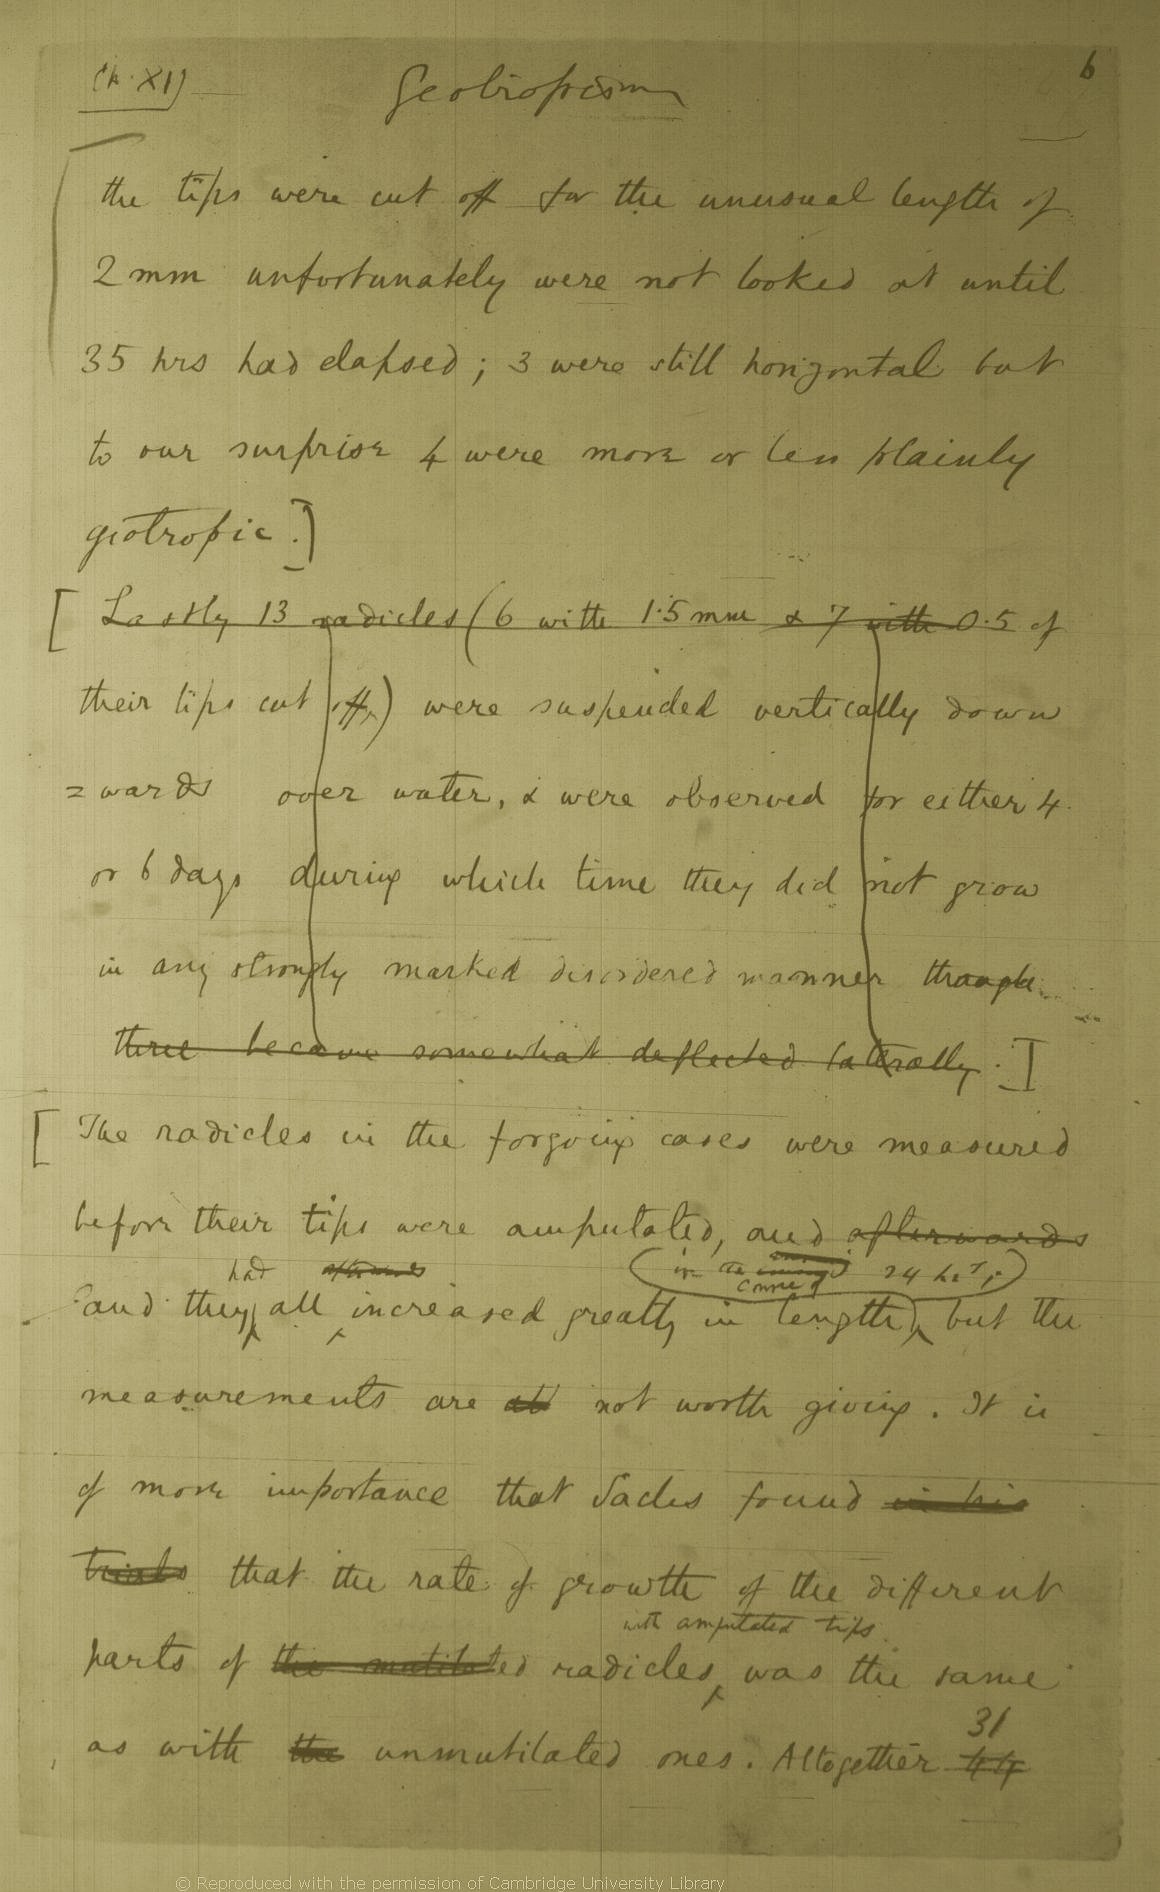 Ch. XI)
Geotropism
6
the tips were cut off for the unusual length of
2 mm unfortunately were not looked at until
35 hrs had elapsed; 3 were still horizontal but
to our surprise 4 were more or less plainly
geotropic.]
[Lastly 13 radicles (6 with 1.5 mm & 7 with 0.5 of
their tips cut off) were suspended vertically down
=wards over water, & were observed for either 4
or 6 days during which time they did not grow
in any strongly marked disordered manner though
three became somewhat deflected laterally.]
[The radicles in the forgoing cases were measured
before their tips were amputated, and afterwards
had afterwards (in the 24 hrs,)
and they all increased greatly in length), but the
measurements are not worth giving. It is
of more importance that Sachs found in his
trials that the rate of growth of the different
with amputated tips
parts of the mutilated radicles was the same
31
as with the unmutilated ones. Altogether 44
© Reproduced with the permission of Cambridge University Library